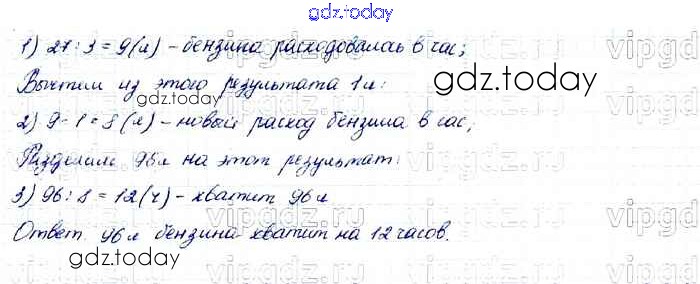 gdz.today
1) 27 : 3 = 9(л) - бензина расходовалась в час;
Вычтем из этого результата 1 л:
gdz.today
gdz.today
2) 9 - 1 = 8 (л) - новый расход бензина в час;
Разделим 96 л на этот результат:
3) 96 : 8 = 12(ч) - хватит 96 л
Ответ. 96 л бензина хватит на 12 часов.
gdz.today
gdz.today